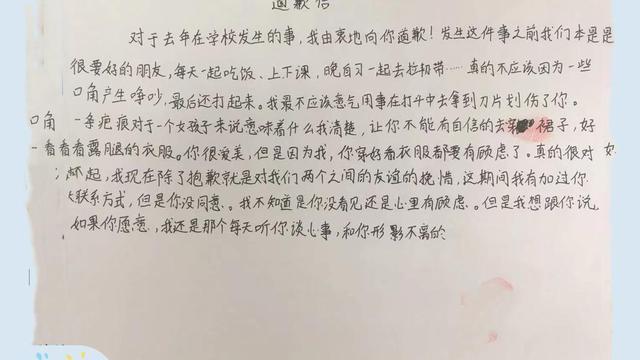 道歉信
对于去年在学校发生的事，我由衷地向你道歉！发生这件事之前我们本是是
很要好的朋友，每天一起吃饭、上下课，晚自习一起去拉韧带……真的不应该因为一些
口角产生争吵，最后还打起来。我最不应该意气用事在打斗中去拿到刀片划伤了你。
口角 一条疤痕对于一个女孩子来说意味着什么我清楚，让你不能有自信的去穿 裙子，好
一看看看露腿的衣服。你很爱美，但是因为我，你穿好看衣服都要有顾虑了。真的很对 好
起，我现在除了抱歉就是对我们两个之间的友谊的挽惜，这期间我有加过你
联系方式，但是你没同意。我不知道是你没看见还是心里有顾虑。但是我想跟你说，
如果你愿意，我还是那个每天听你谈心事，和你形影不离的